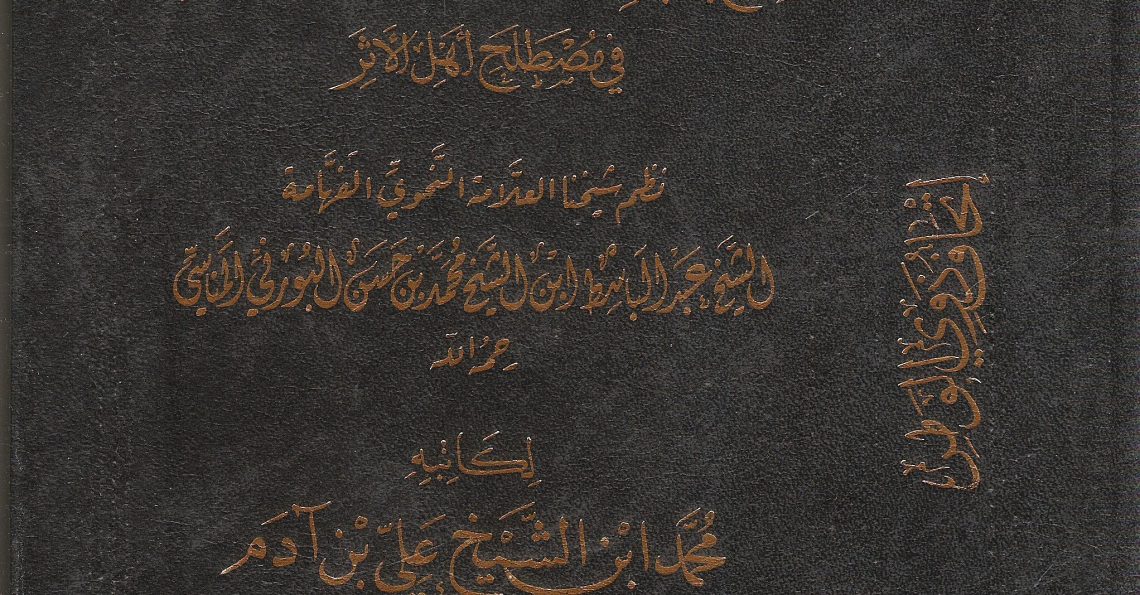 فِي مُصْطَلَحِ أَهْلِ الأَثَرِ
نظم شيخنا العلَّامة النَّحويِّ الفَهَّامة
الشَّيْخ عَبْد البَاسِط ابْن الشَّيْخ مُحمَّد بْن حَسَن البُورَنِيّ المَنَاسِيّ
رحمهُ الله
لِكَاتِبِهِ
مُحَمَّد ابْن الشَّيْخ عَلِيّ بْن آدَم
إتحاف ذوي الوطر